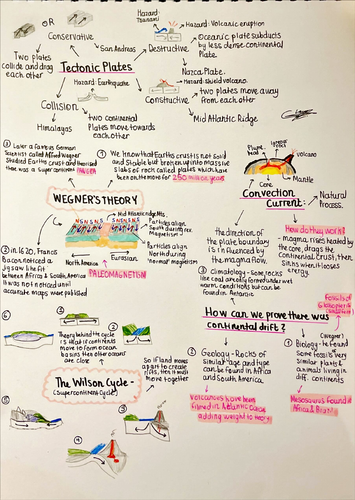 Hazard:
Tsunami
OR
Conservative
Two plates
collide and drag
each other
San Andreas
Tectonic Plates
Hazard: Earthquake
Collision
Himalayas
two continental
Plates move towards
each other
Destructive
Hazard: Volcanic eruption
Oceanic plate subducts
by less dense continental
Plate.
Nazca Plate.
Hazard: shield volcano
Constructive
two plates move away
from each other
Mid Atlantic Ridge
① We know that Earths crust is not solid
and Stable but broken up into massive
Slabs of rock called plates which have
been on the move for 250 million years
③ Later a famous German
Scientist called Alfred Wegner
Studied Earths crust and theorised
there was a Super continent PANGEA
WEGNER'S THEORY
② In 1620, Francis
Bacon noticed a
Jigsaw like fit
between Africa & South America
It was not noticed until
accurate maps were published
Mid Atlantic ridge
N S N S N S N S
Particles align
South during rev.
magnetism
Particles align
North during
'normal' magnetism
North America
Eurasian
PALEOMAGNETISM
volcano
Mantle
Core
Convection
Current:
Natural
Process.
How do they work?
- magma rises heated by
the core, drags the
Continental crust, then
Sinks when it looses
energy
the direction of
the plate boundary
is influenced by
the magma flow.
③ Climatology - Some rocks
like coal are only formed under wet
warm conditions but can be
found in Antarctic
How can we prove there was
continental drift?
② Geology - Rocks of
Similar age and type
can be found in Africa
and South America.
① Biology - he found
Some fossils very
Similar plants &
animals living in
diff. continents
Mesosaurus found in
Africa & Brazil
Theory behind the cycle
is that if continents
move to form ocean
basins then other oceans
are close
The Wilson Cycle -
(Supercontinent Cycle)
So if land moves
apart to create
rifts, then it must
move together
①
②
③
④
⑤
⑥